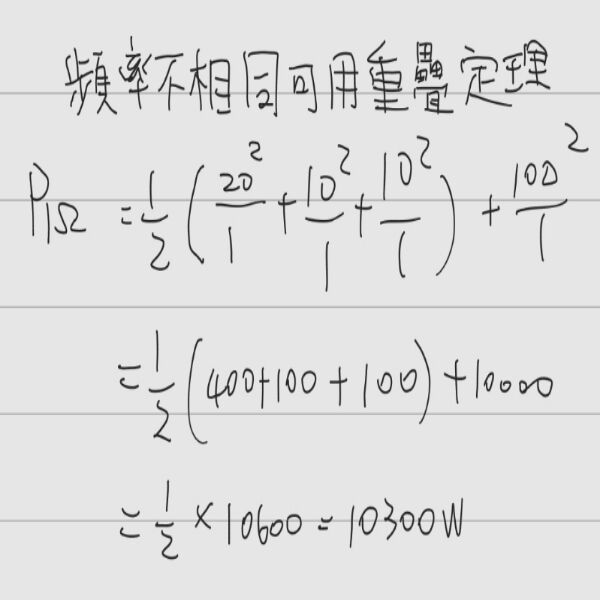 頻率不相同可用重疊定理
P₁Ω = 1/2 (20²/1 + 10²/1 + 10²/1) + 100²/1
= 1/2 (400+100+100) + 10000
= 1/2 × 10600 = 10300W